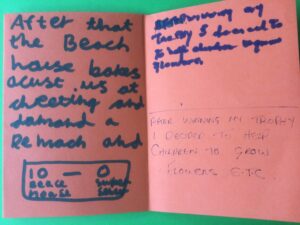 After that
the Beach
house bakes
acust us at
cheeting and
demand a
Remach and
10 — 0
Beace
House
Super
my
trophy I decied to
to help
flowers.
AFTER WINNING MY TROPHY
I DECIDED TO HELP
CHILDREN TO GROW
FLOWERS E.T.C.